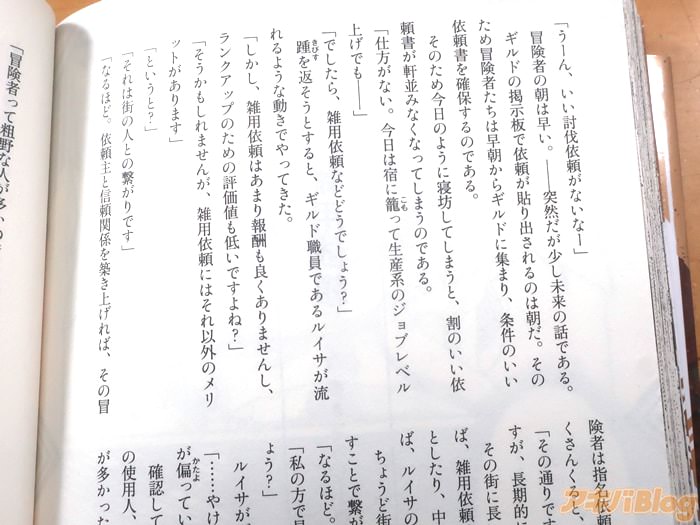 「うーん、いい討伐依頼がないなー」
冒険者の朝は早い。――突然だが少し未来の話である。
ギルドの掲示板で依頼が貼り出されるのは朝だ。その
ため冒険者たちは早朝からギルドに集まり、条件のいい
依頼書を確保するのである。
そのため今日のように寝坊してしまうと、割のいい依
頼書が軒並みなくなってしまうのである。
「仕方がない。今日は宿に籠って生産系のジョブレベル
上げでも――」
「でしたら、雑用依頼などどうでしょう？」
踵を返そうとすると、ギルド職員であるルイサが流
れるような動きでやってきた。
「しかし、雑用依頼はあまり報酬も良くありませんし、
ランクアップのための評価値も低いですよね？」
「そうかもしれませんが、雑用依頼にはそれ以外のメリ
ットがあります」
「というと？」
「それは街の人との繋がりです」
「なるほど。依頼主と信頼関係を築き上げれば、その冒
険者は指名依
くさんくると、
「その通りです
すが、長期的に
その街に長
ば、雑用依頼
としたり、中
ば、ルイサの
ちょうど街
すことで繋が
「なるほど。
「私の方で見
ょう？」
ルイサが
「……やけ
が偏ってい
確認して
の使用人、
が多かった
「冒険者って粗野な人が多いの
アキバBlog